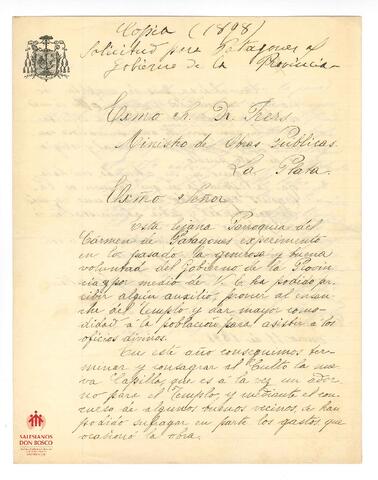 Copia (1898)
Solicitud para Patagones al
Gobierno de la Provincia
Exmo Sr. Dr. Frers
Ministro de Obras Publicas.
La Plata.
Exmo Señor
Esta lejana Parroquia del
Cármen de Patagones experimentó
en lo pasado la generosa y buena
voluntad del Gobierno de la Provin
cia y por medio de V. E. ha podido per
cibir algún auxilio, proveer al ensan
che del templo y dar mayor como
didad á la poblacion para asistir a los
oficios divinos.
En este año conseguimos ter
minar y consagrar al Culto la nue
va Capilla, que es á la vez un ador
no para el Templo, y mediante el con
curso de algunos buenos vecinos se han
podido sufragar en parte los gastos que
ocasionó la obra.
SALESIANOS
DON BOSCO